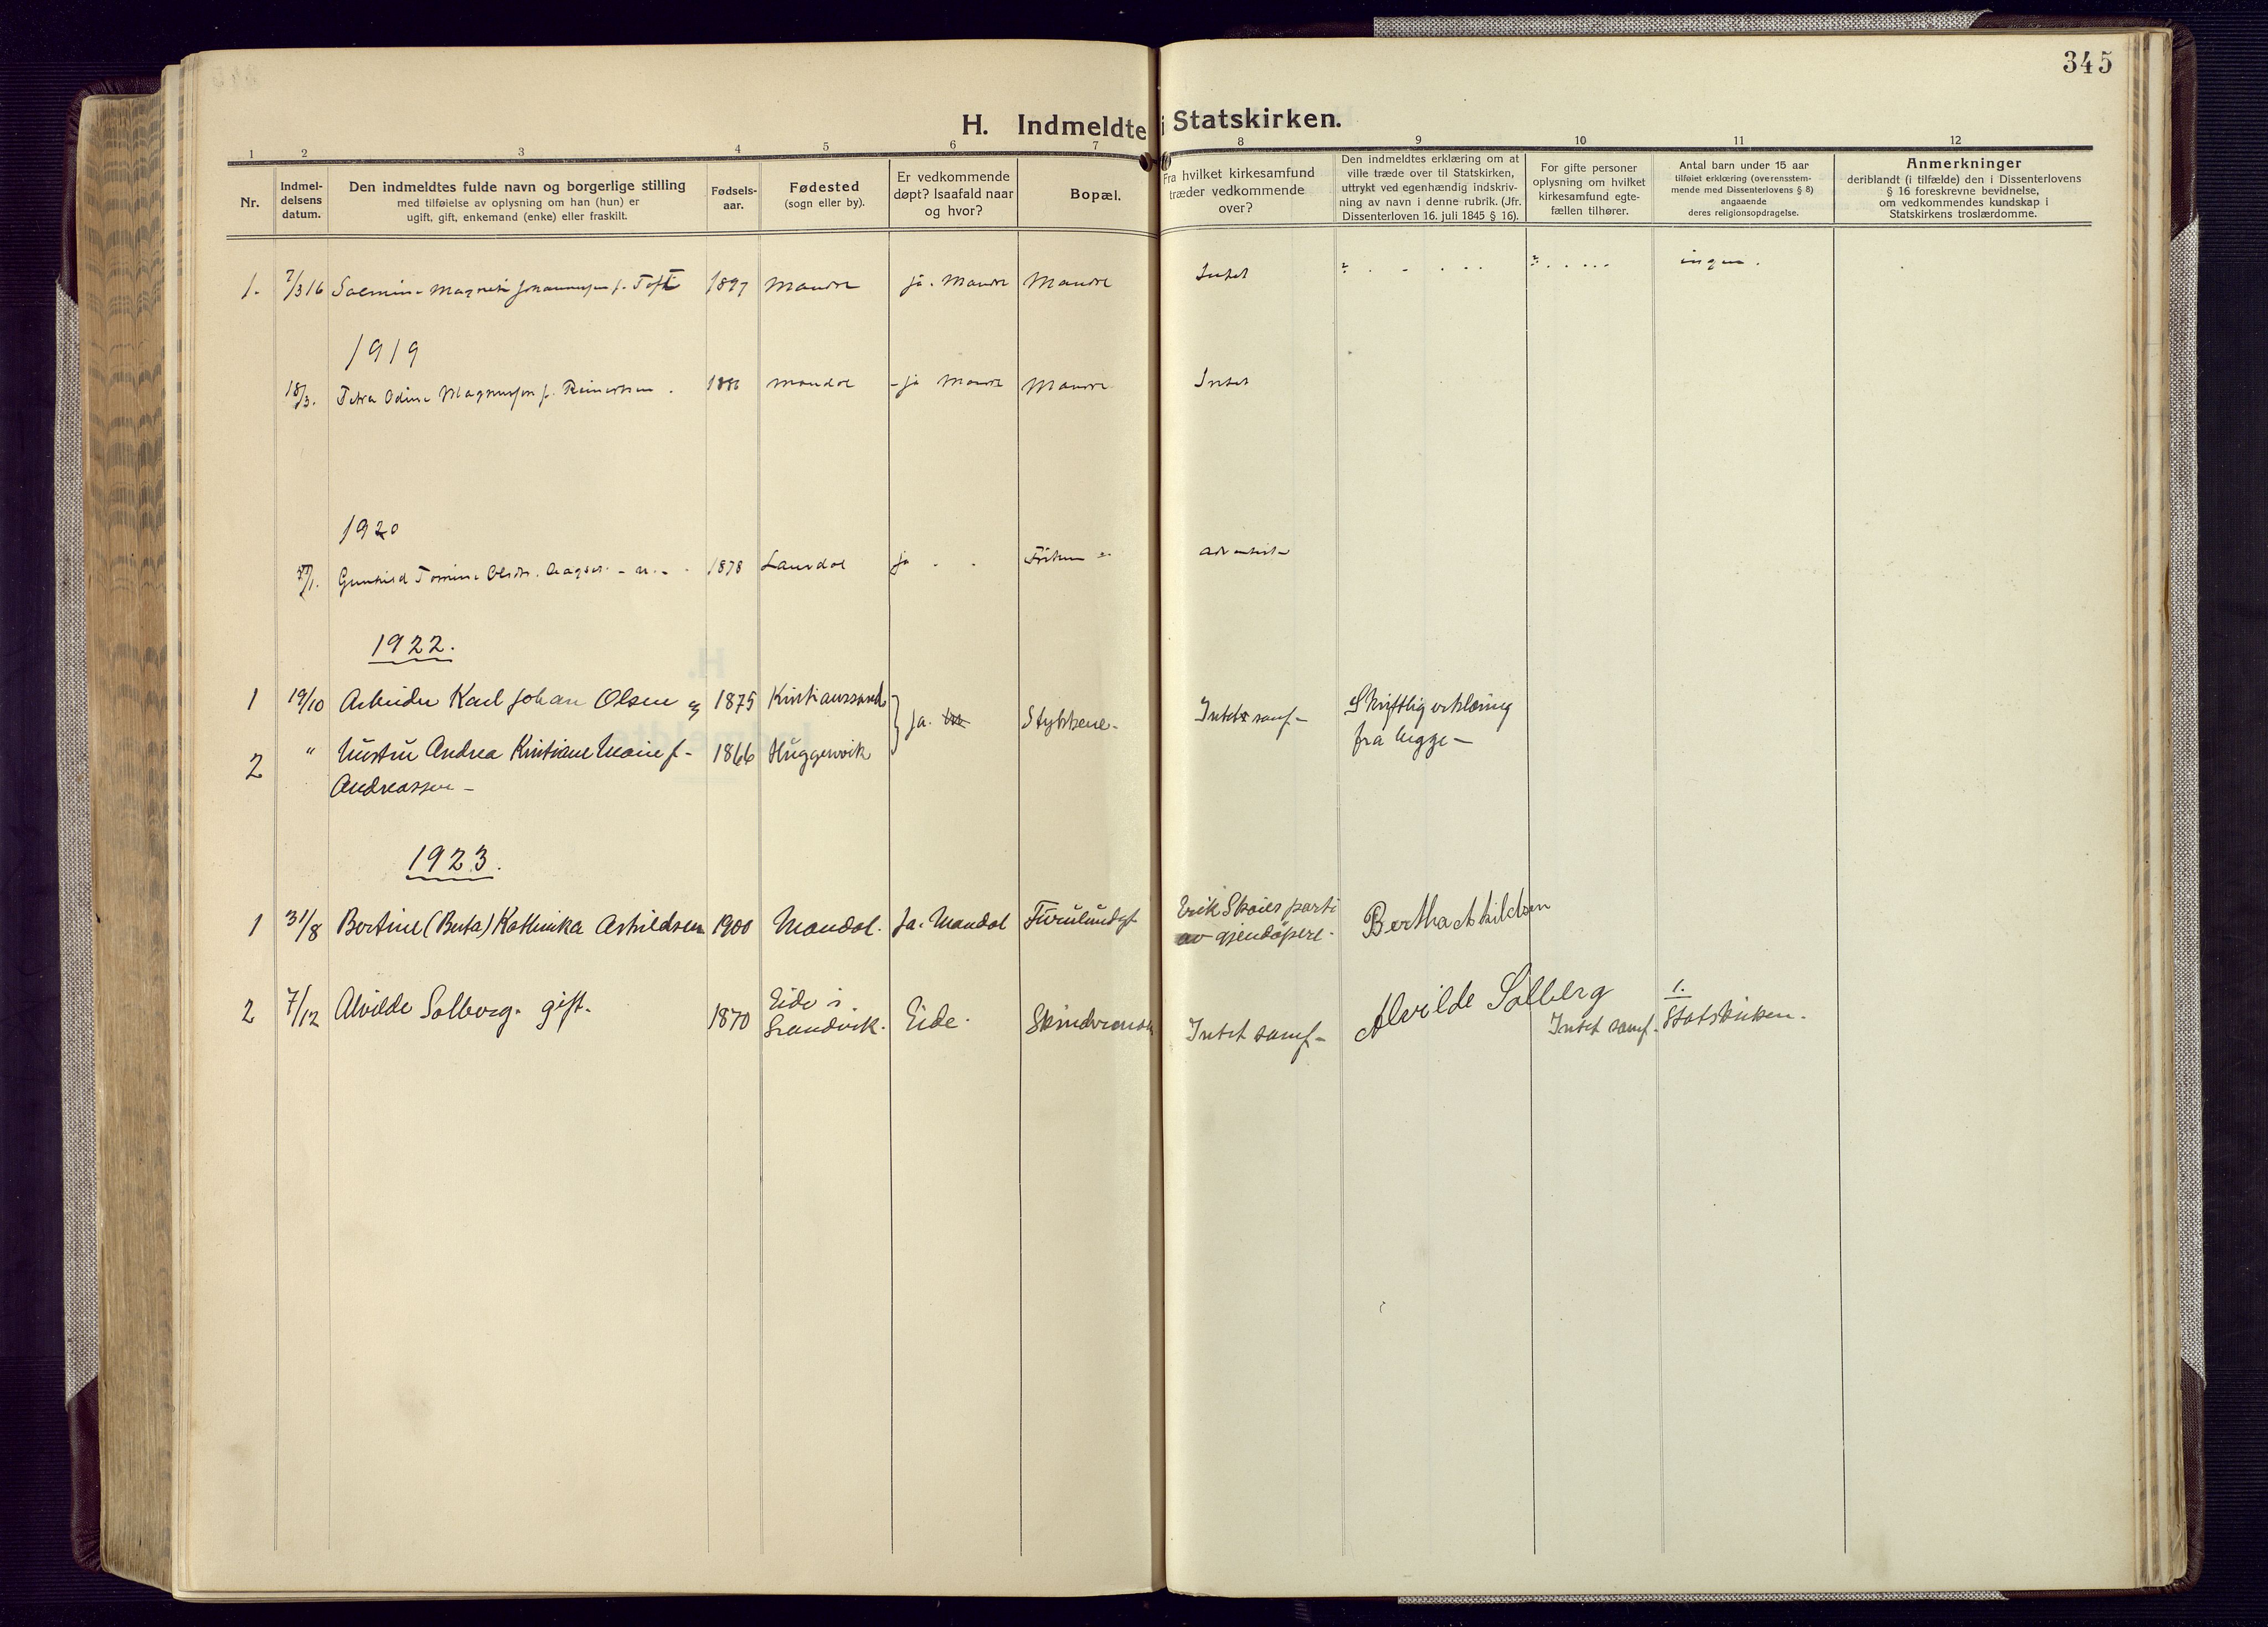 345
H. Indmeldte i Statskirken.
1 2 3 4 5 6 7 8 9 10 11 12
Nr.
Indmel-
delsens
datum.
Den indmeldtes fulde navn og borgerlige stilling
med tilføielse av oplysning om han (hun) er
ugift, gift, enkemand (enke) eller fraskilt.
Fødsels-
aar.
Fødested
(sogn eller by).
Er vedkommende
døpt? Isaafald naar
og hvor?
Bopæl.
Fra hvilket kirkesamfund
træder vedkommende
over?
Den indmeldtes erklæring om at
ville træde over til Statskirken,
uttrykt ved egenhændig indskriv-
ning av navn i denne rubrik. (Jfr.
Dissenterloven 16. juli 1845 § 16).
For gifte personer
oplysning om hvilket
kirkesamfund egte-
fællen tilhører.
Antal barn under 15 aar
tilføiet erklæring (overensstem-
mende med Dissenterlovens § 8)
angaaende
deres religionsopdragelse.
Anmerkninger
deriblandt (i tilfælde) den i Dissenterlovens
§ 16 foreskrevne bevidnelse,
om vedkommendes kundskap i
Statskirkens troslærdomme.
1. 7/3 16 Johannesen f. Toft 1897 Mandal ja. Mandal Mandal Intet ingen.
1919
18/3. Petra Odine Magnussen f. Reinertsen. Mandal - ja Mandal Mandal Intet
1920
Gunhild Tomine Olsdtr. 1878 Laudal ja
1922.
1 19/10 Arbeider Karl Johan Olsen og 1875 Kristianssand ja. Intet samf- Skriftlig erklæring
fra begge-
2 " hustru Andrea Kristiane Marie f- 1866
Andreassen-
1923.
1 31/8 Bertine (Berta) Kathinka Askildsen 1900 Mandal. Ja. Mandal Furulundgt Erik Skøies parti Bertha Askildsen
av gjendøpere.
2 7/12 Alvilde Solberg. gift. 1870 Eide i Eide. Intet samf- Alvilde Solberg Intet samf. 1.
Statskirken.